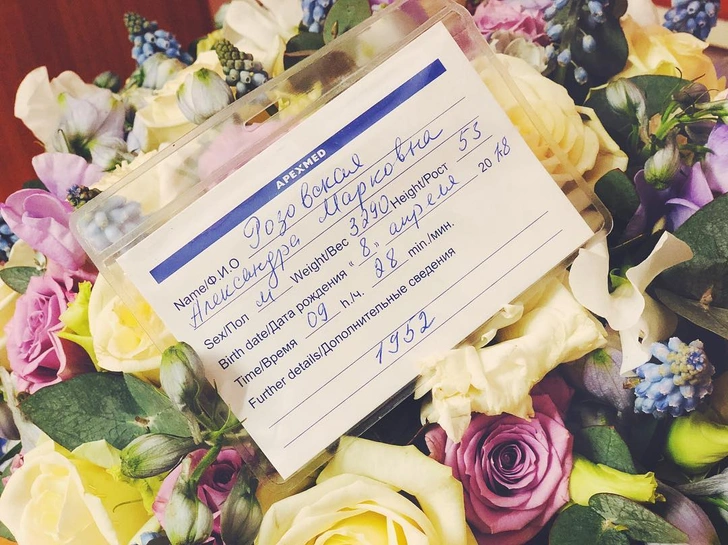 APEXMED
Name/Ф.И.О Розовская
Александра Марковна
Sex/Пол м Weight/Вес 3290 Height/Рост 53
Birth date/Дата рождения "8" апреля 2018
Time/Время 09 h/ч. 28 min./мин.
Further details/Дополнительные сведения
1952